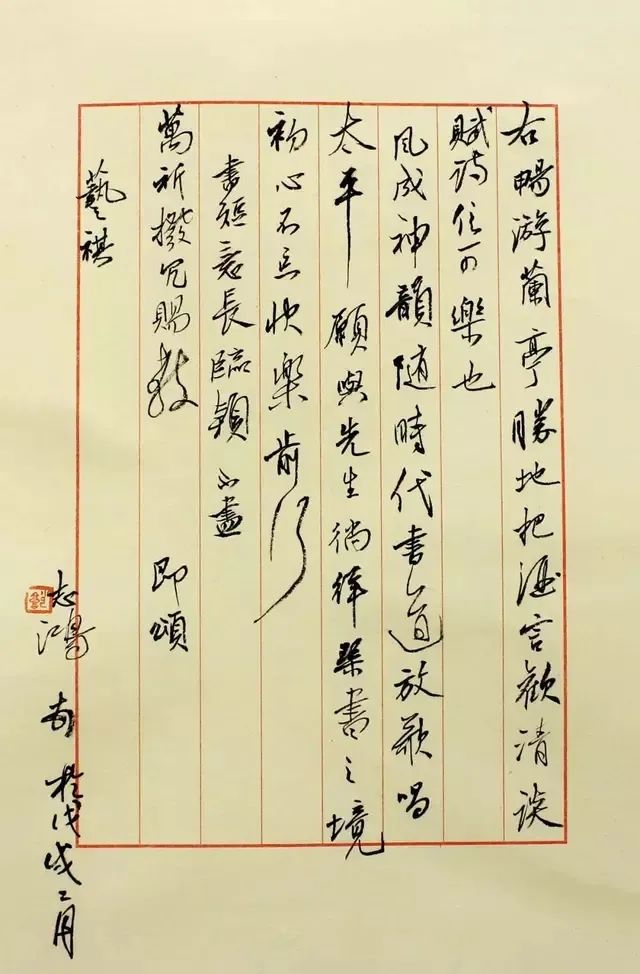 右暢游蘭亭勝地把酒言歡清談
賦詩信可樂也
風成神韻随時代書道放歌唱
太平願與先生徜徉琴書之境
初心不忘快樂前行
書短意長臨穎不盡
萬祈撥冗賜教 即頌
藝祺
志鴻 於戊戌二月